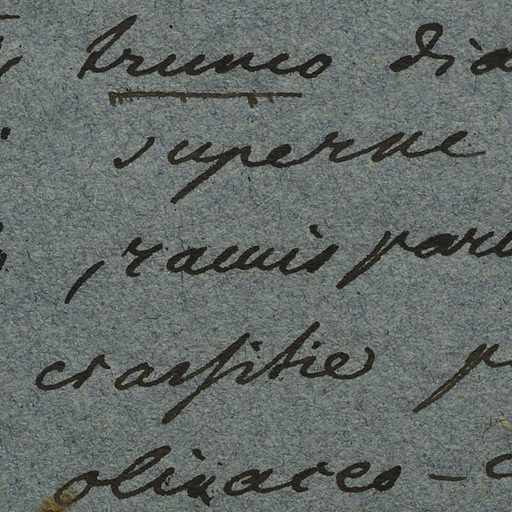 trunco dia
superne
, ramis par
crassitie p
olivaceo - c